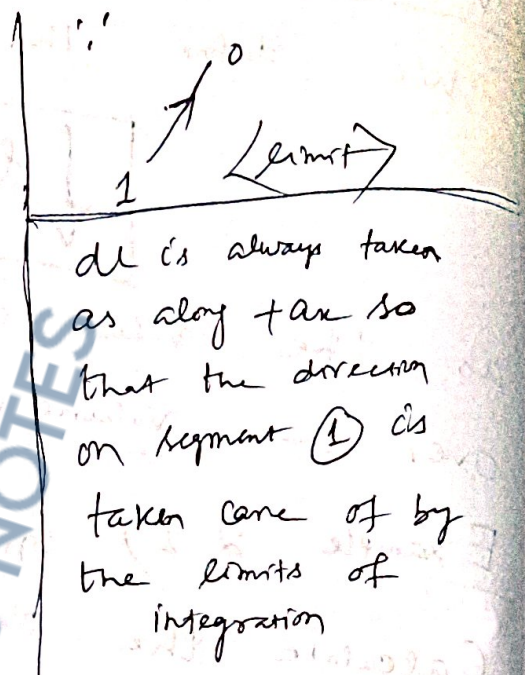 ∵
0
1
limit
dl is always taken
as along +ax so
that the direction
on segment ① is
taken care of by
the limits of
integration
NOTES